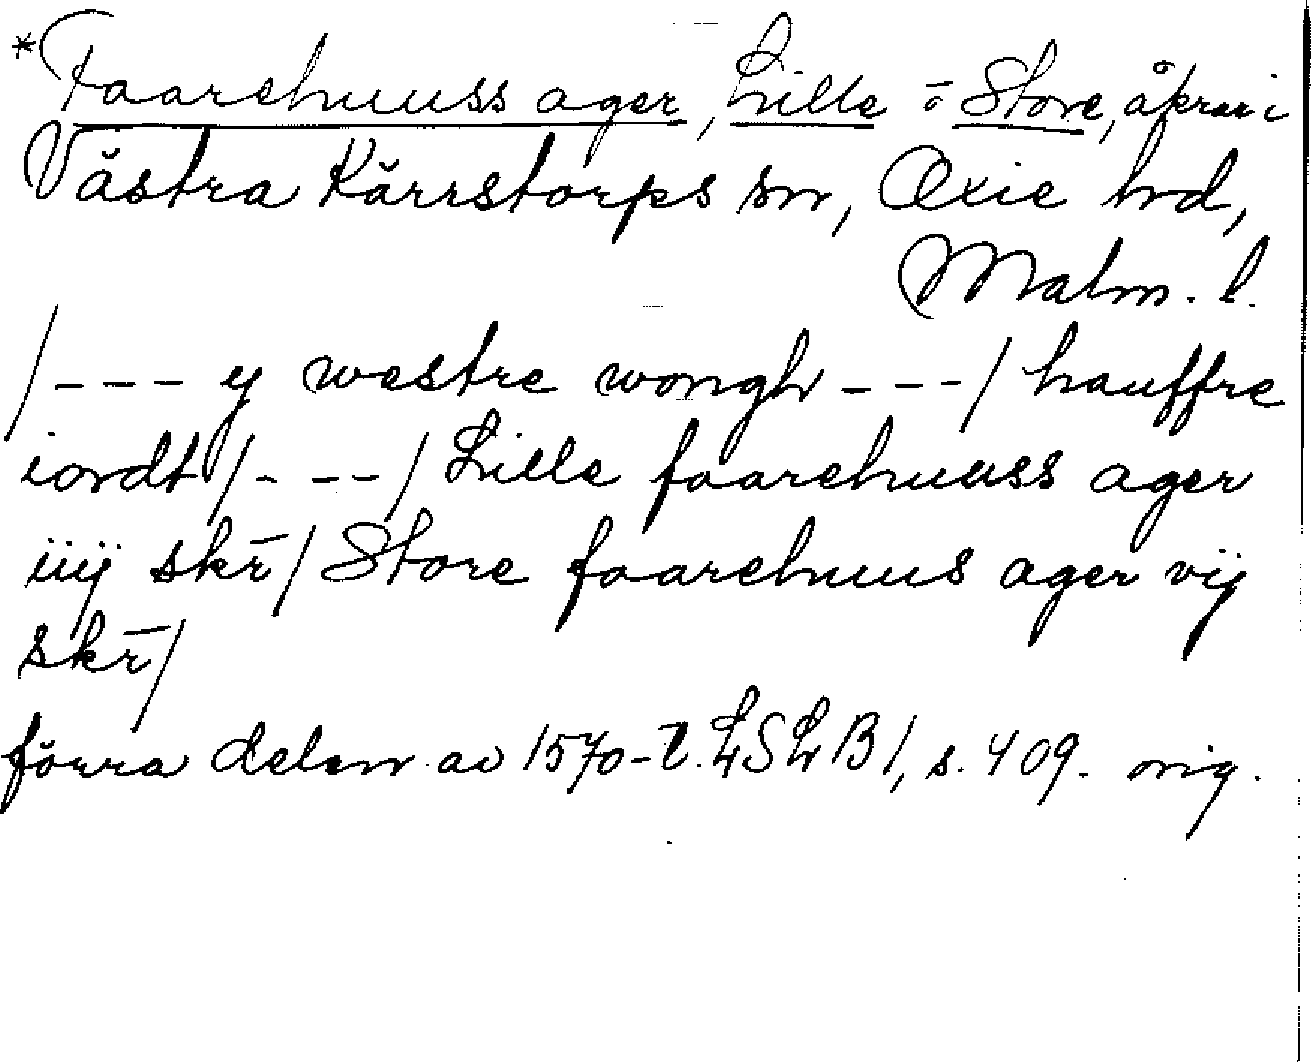 *Faarehuuss ager, Lille o Store, åkrar i
Västra Kärrstorps sn, Oxie hrd,
Malm. l.
/--- y westre wongh ---/ hauffre
iordt /---/ Lille faarehuuss ager
iiij skr̄/ Store faarehuus ager vij
skr̄/
förra delen av 1570-t. LSLB1, s. 409. orig.